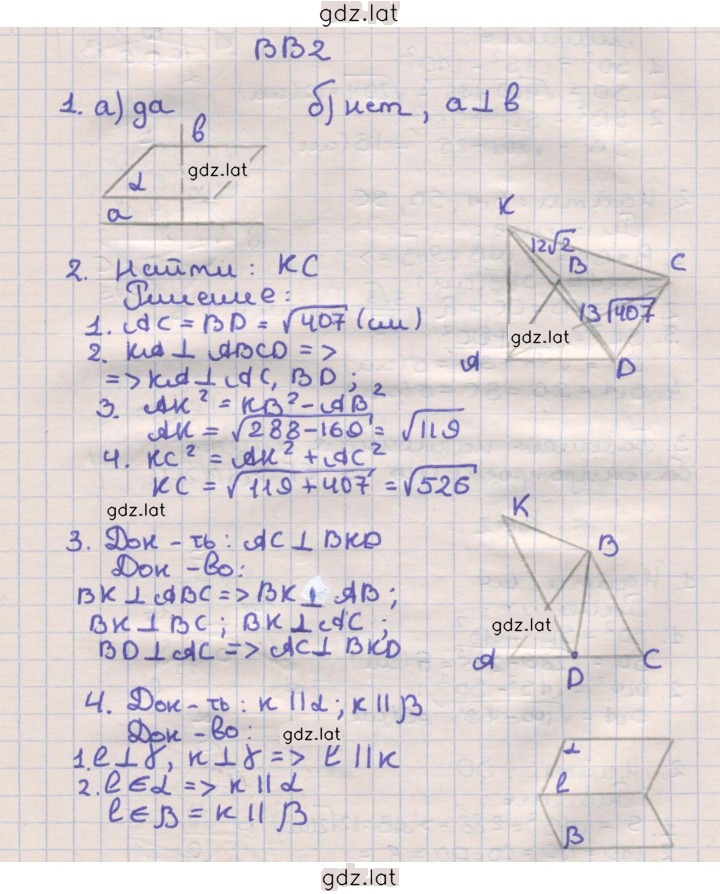 gdz.lat
ВВ2
1. а) да б) нет, a⊥b
b
gdz.lat
α
a
2. Найти: KC
Решение:
1. AC = BD = √407 (см)
2. KA ⊥ ABCD =>
=> KA ⊥ AC, BD;
3. AK² = KB² - AB²
AK = √288-169 = √119
4. KC² = AK² + AC²
KC = √119+407 = √526
K
12√2
B
C
13
√407
gdz.lat
A
D
gdz.lat
3. Док-ть: AC ⊥ BKD
Док-во:
BK ⊥ ABC => BK ⊥ AB;
BK ⊥ BC; BK ⊥ AC;
BD ⊥ AC => AC ⊥ BKD
K
B
gdz.lat
A
D
C
4. Док-ть: к || α; к || β
Док-во:
gdz.lat
1. ℓ ⊥ γ, к ⊥ γ => ℓ || к
2. ℓ ∈ α => к || α
ℓ ∈ β = к || β
α
ℓ
β
gdz.lat